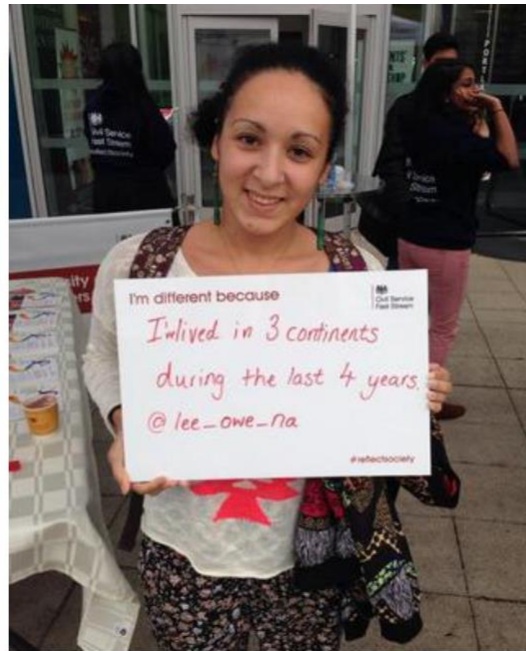 Civil Service
Fast Stream
#reflectsociety
I'm different because
Civil Service
Fast Stream
I'v lived in 3 continents
during the last 4 years.
@ lee_owe_na
#reflectsociety